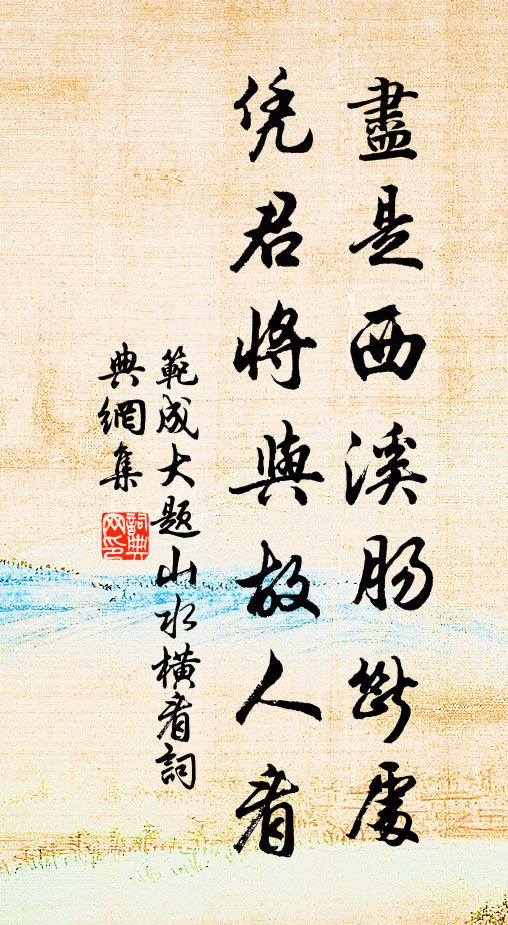 盡是西溪腸斷處
凭君將與故人看
範成大題山水橫看詞
典網集
詞典网印